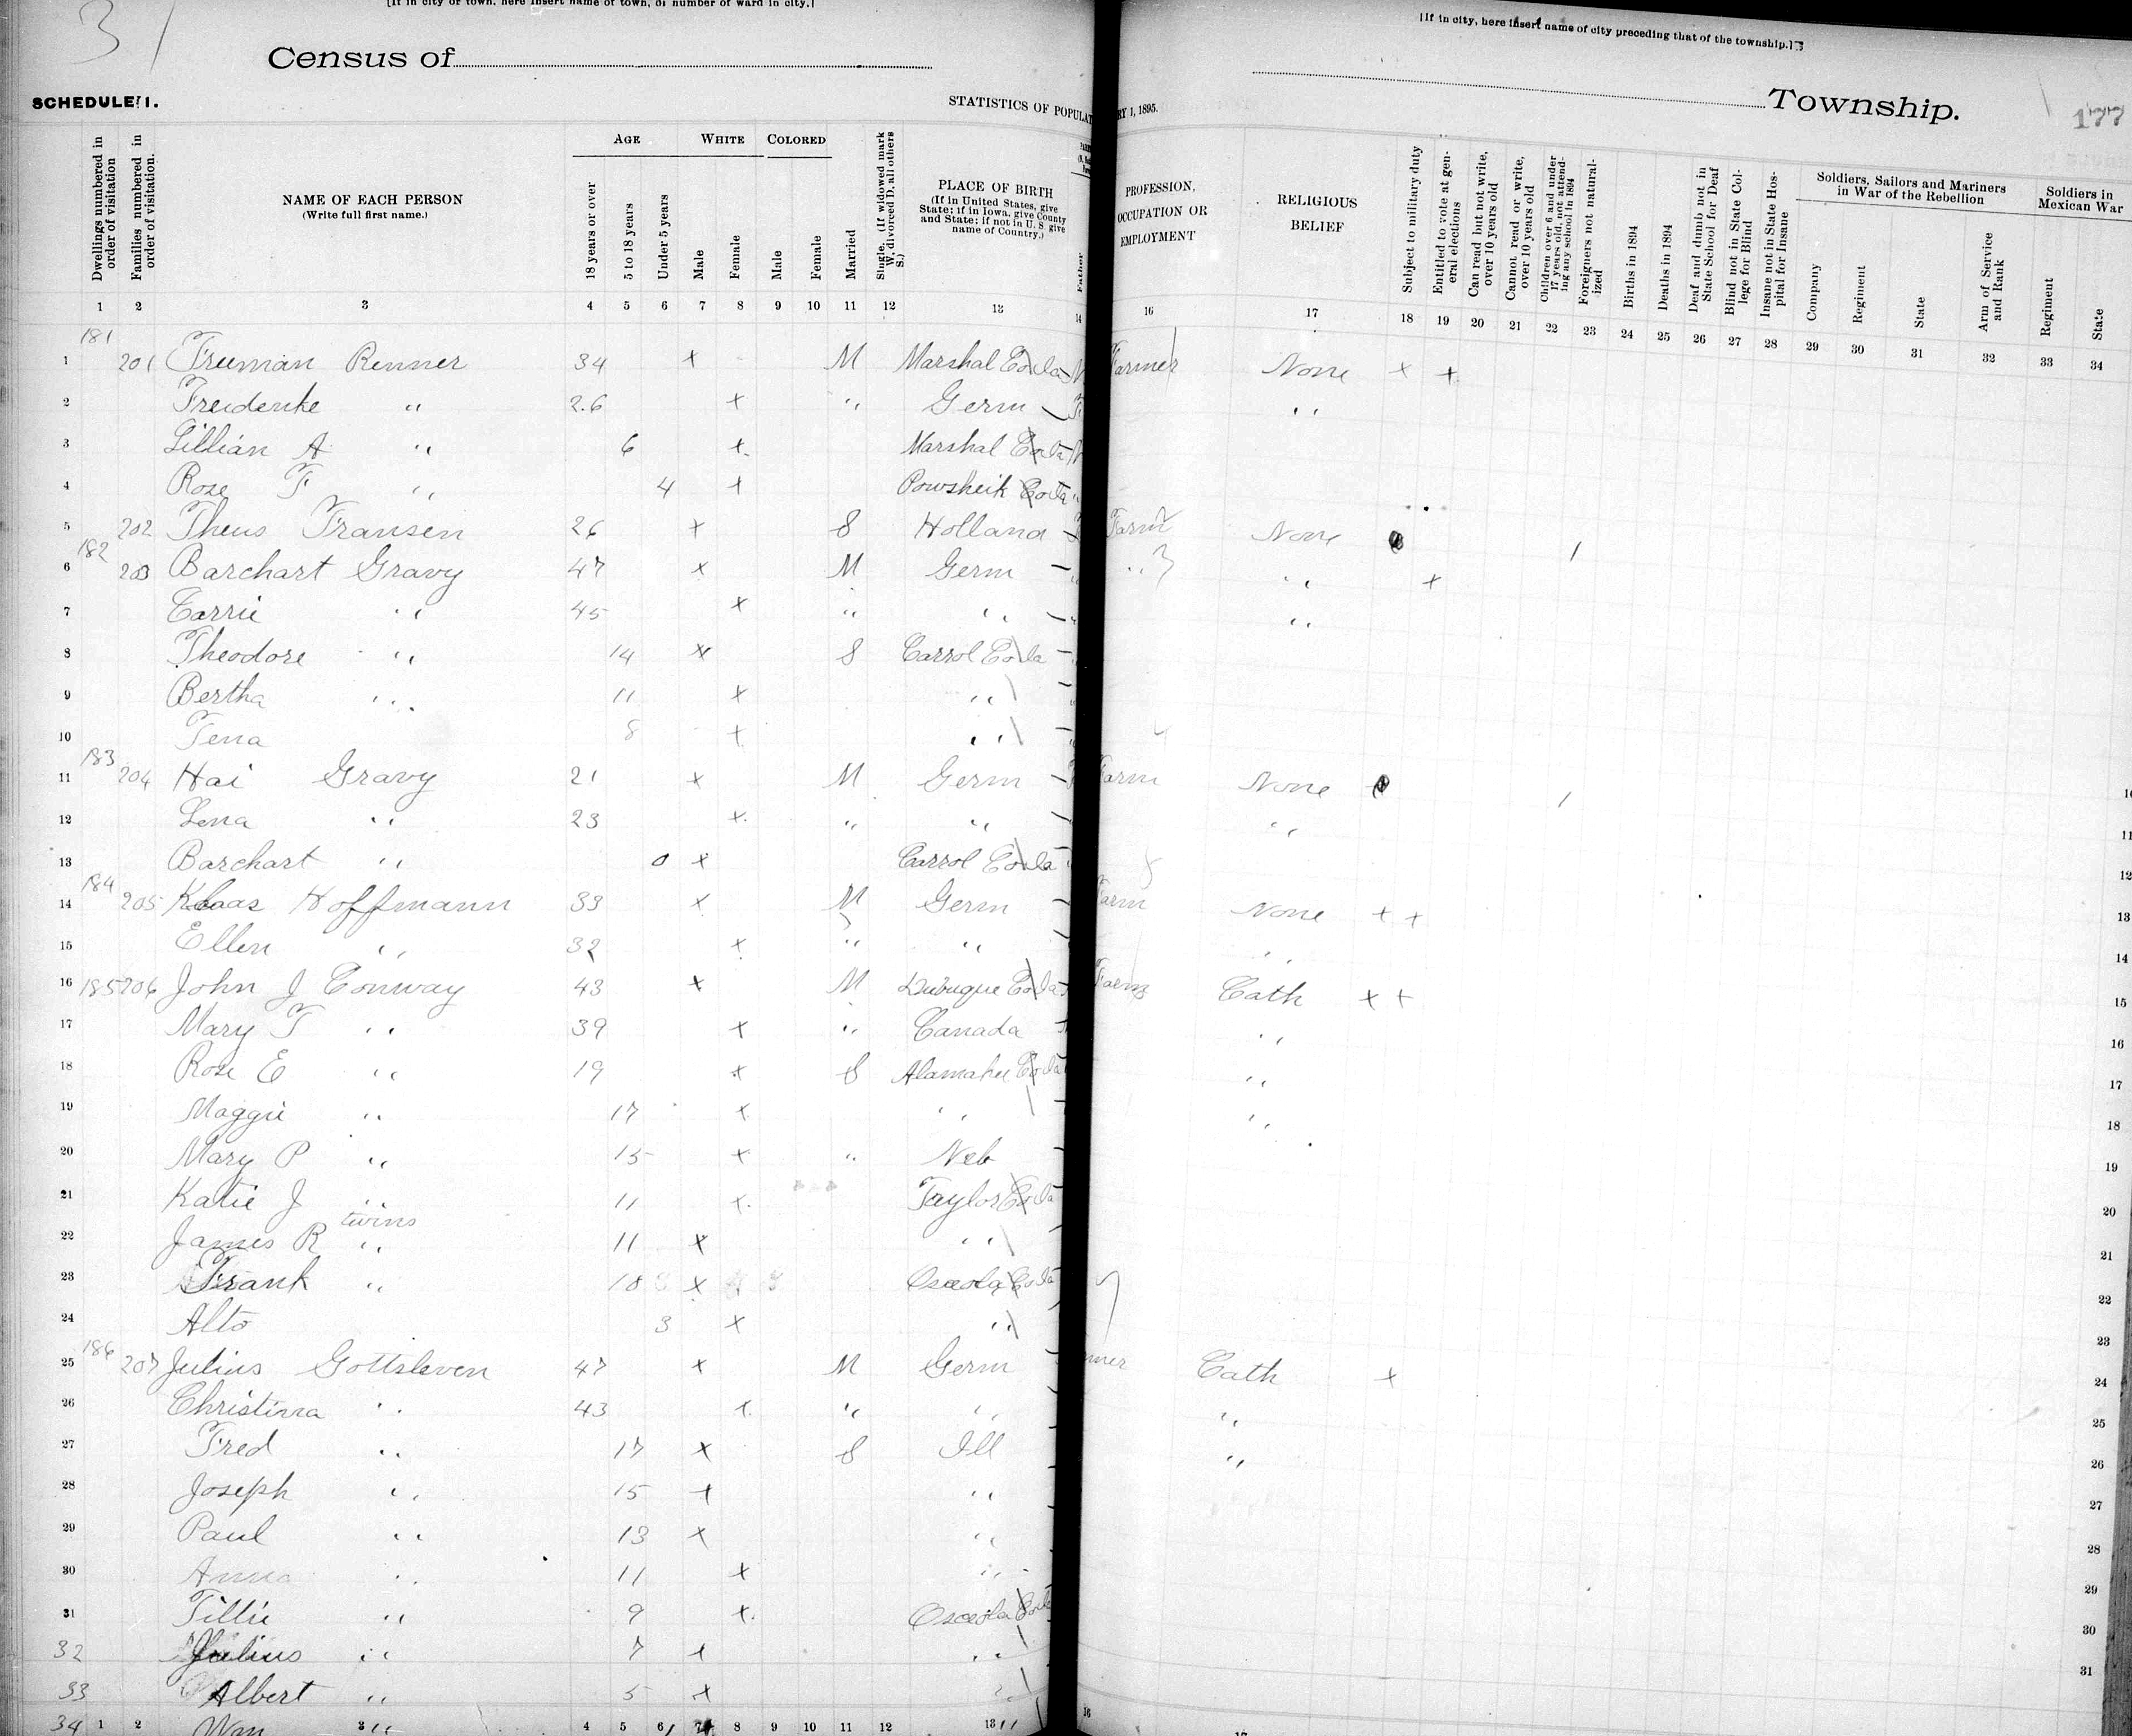 31
[If in city or town, here insert name of town, or number of ward in city.]
[If in city, here insert name of city preceding that of the township.]
Census of
Township.
177
SCHEDULE 1.
STATISTICS OF POPULAT
RY 1, 1895.
Dwellings numbered in order of visitation
Families numbered in order of visitation.
NAME OF EACH PERSON
(Write full first name.)
AGE
18 years or over
5 to 18 years
Under 5 years
WHITE
Male
Female
COLORED
Male
Female
Married
Single. (If widowed mark W, divorced D, all others S.)
PLACE OF BIRTH
(If in United States, give State; if in Iowa, give County and State; if not in U. S. give name of Country.)
Father
PROFESSION, OCCUPATION OR EMPLOYMENT
RELIGIOUS BELIEF
Subject to military duty
Entitled to vote at general elections
Can read but not write, over 10 years old
Cannot read or write, over 10 years old
Children over 6 and under 17 years old, not attending any school in 1894
Foreigners not naturalized
Births in 1894
Deaths in 1894
Deaf and dumb not in State School for Deaf
Blind not in State College for Blind
Insane not in State Hospital for Insane
Soldiers, Sailors and Mariners in War of the Rebellion
Company
Regiment
State
Arm of Service and Rank
Soldiers in Mexican War
Regiment
State
1 2 3 4 5 6 7 8 9 10 11 12 13 14 16 17 18 19 20 21 22 23 24 25 26 27 28 29 30 31 32 33 34
181
1 201 Freeman Renner 34 x M Marshal Co Ia Farmer None x x
2 Freiderike " 26 x " Germ "
3 Lillian A " 6 x Marshal Co Ia
4 Rose F " 4 x Powsheik Co Ia
5 202 Theus Fransen 26 x S Holland Farm None /
182
6 203 Barchart Gravy 47 x M Germ " " x
7 Carrie " 45 x " " "
8 Theodore " 14 x S Carrol Co Ia
9 Bertha " 11 x "
10 Tena 8 x "
183
11 204 Hai Gravy 21 x M Germ Farm None /
12 Lena " 23 x " " "
13 Barchart " 0 x Carrol Co Ia
184
14 205 Klaas Hoffmann 33 x M Germ Farm None x x
15 Ellen " 32 x " " "
16 185 206 John J Conway 43 x M Dubuque Co Ia Farm Cath x x
17 Mary T " 39 x " Canada "
18 Rose E " 19 x S Alamakee Co Ia "
19 Maggie " 17 x " "
20 Mary P " 15 x " Neb
21 Katie J " 11 x Taylor Co Ia
twins
22 James R " 11 x "
23 Frank " 10 x Osceola Co Ia
24 Alto 3 x "
186
25 207 Julius Gottsleven 47 x M Germ mer Cath x
26 Christinna " 43 x " " "
27 Fred " 17 x S Ill "
28 Joseph " 15 x "
29 Paul " 13 x "
30 Anna " 11 x "
31 Tillie " 9 x Osceola Co Ia
32 Julius " 7 x "
33 Albert " 5 x "
34
1 2 3 4 5 6 7 8 9 10 11 12 13 16